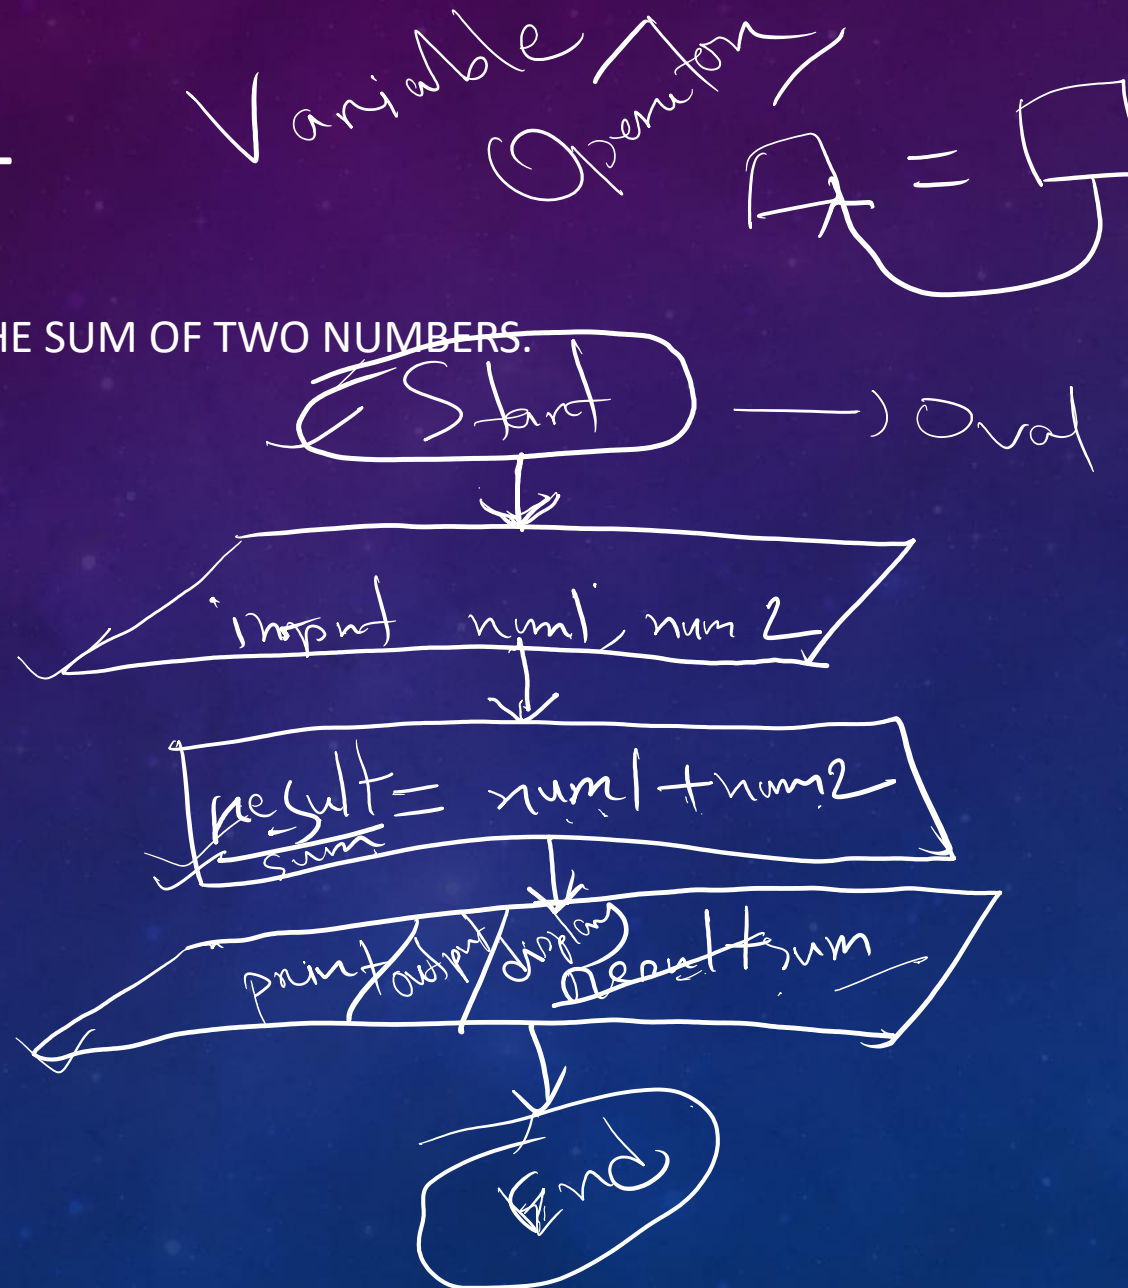 Variable /
Operator /
=
HE SUM OF TWO NUMBERS.
Start → Oval
input num1, num2
result = num1 + num2
sum
print / output / display result sum
End